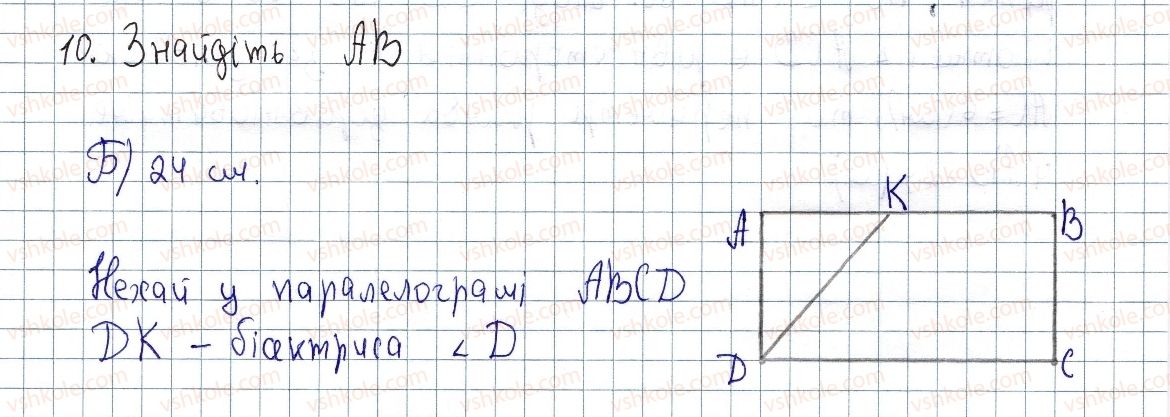 10. Знайдіть AB
Б) 24 см.
Нехай у паралелограмі ABCD
DK – бісектриса ∠D
A K B
D C
vshkole.com